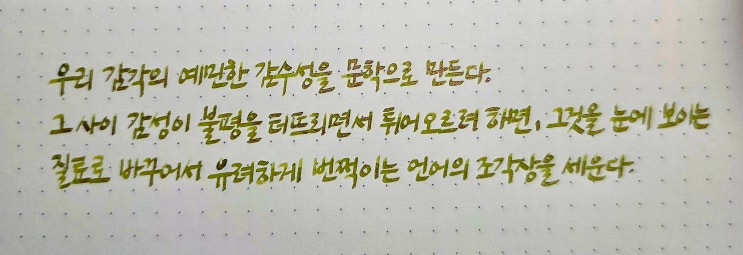 우리 감각의 예민한 감수성을 문학으로 만든다.
그 사이 감성이 불평을 터뜨리면서 튀어오르려 하면, 그것을 눈에 보이는
질료로 바꾸어서 유려하게 번쩍이는 언어의 조각상을 세운다.